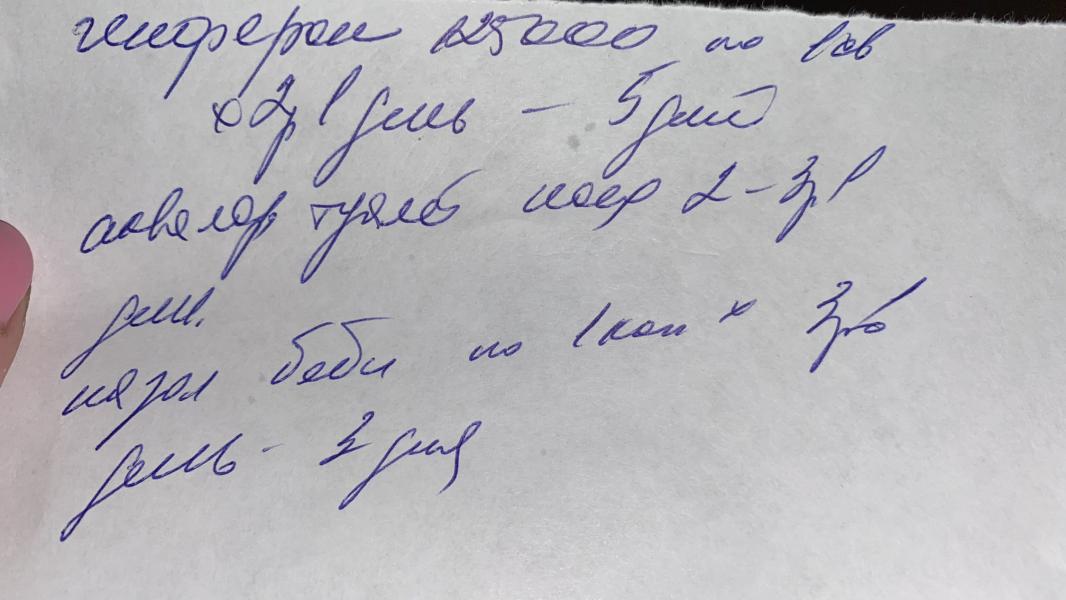 генферон 125000 по 1 св
х 2р/день – 5 дней
аквалор туалет носа 2-3р/
день.
назол беби по 1 кап х 3р в
день – 3 дня